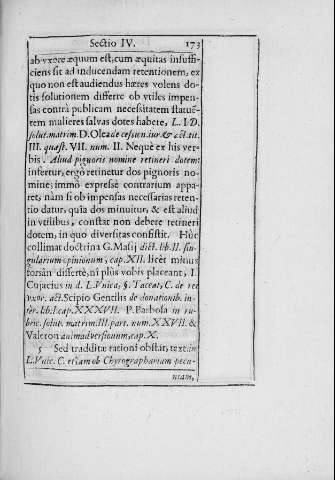 Sectio IV. 173
ab vxore æquum est; cum æquitas insuffi-
ciens sit ad inducendam retentionem, ex
quo non est audiendus hæres volens do-
tis solutionem differre ob vtiles impen-
sas contrà publicam necessitatem statuẽ-
tem mulieres salvas dotes habere, L. I. D.
solut. matrim. D. Olea de cession. iur. & act. tit.
III. quæst. VII. num. II. Nequè ex his ver-
bis. Aliud pignoris nomine retineri dotem:
infertur, ergò retinetur dos pignoris no-
mine; immò expressè contrarium appa-
ret, nàm si ob impensas necessarias reten-
tio datur, quia dos minuitur, & est aliud
in vtilibus, constat non debere retineri
dotem, in quo diversitas consistit. Hùc
collimat doctrina G. Masij dict. lib. II. sin-
gularium opinionum, cap. XII. licèt minus
forsàn dissertè, ni plus vobis placeant, I.
Cujacius in d. L. Vnica, §. Taceat, C. de rei
vxor. act. Scipio Gentilis de donationib. in-
tèr. lib. I. cap. XXXVII. P. Barbosa in ru-
bric. solut. matrim. III. part. num. XXVII. &
Valeron animadversionum, cap. X.
5 Sed tradditæ rationi obstat, text. in
L. Vnic. C. etiam ob Chyrographariam pecu-
niam,